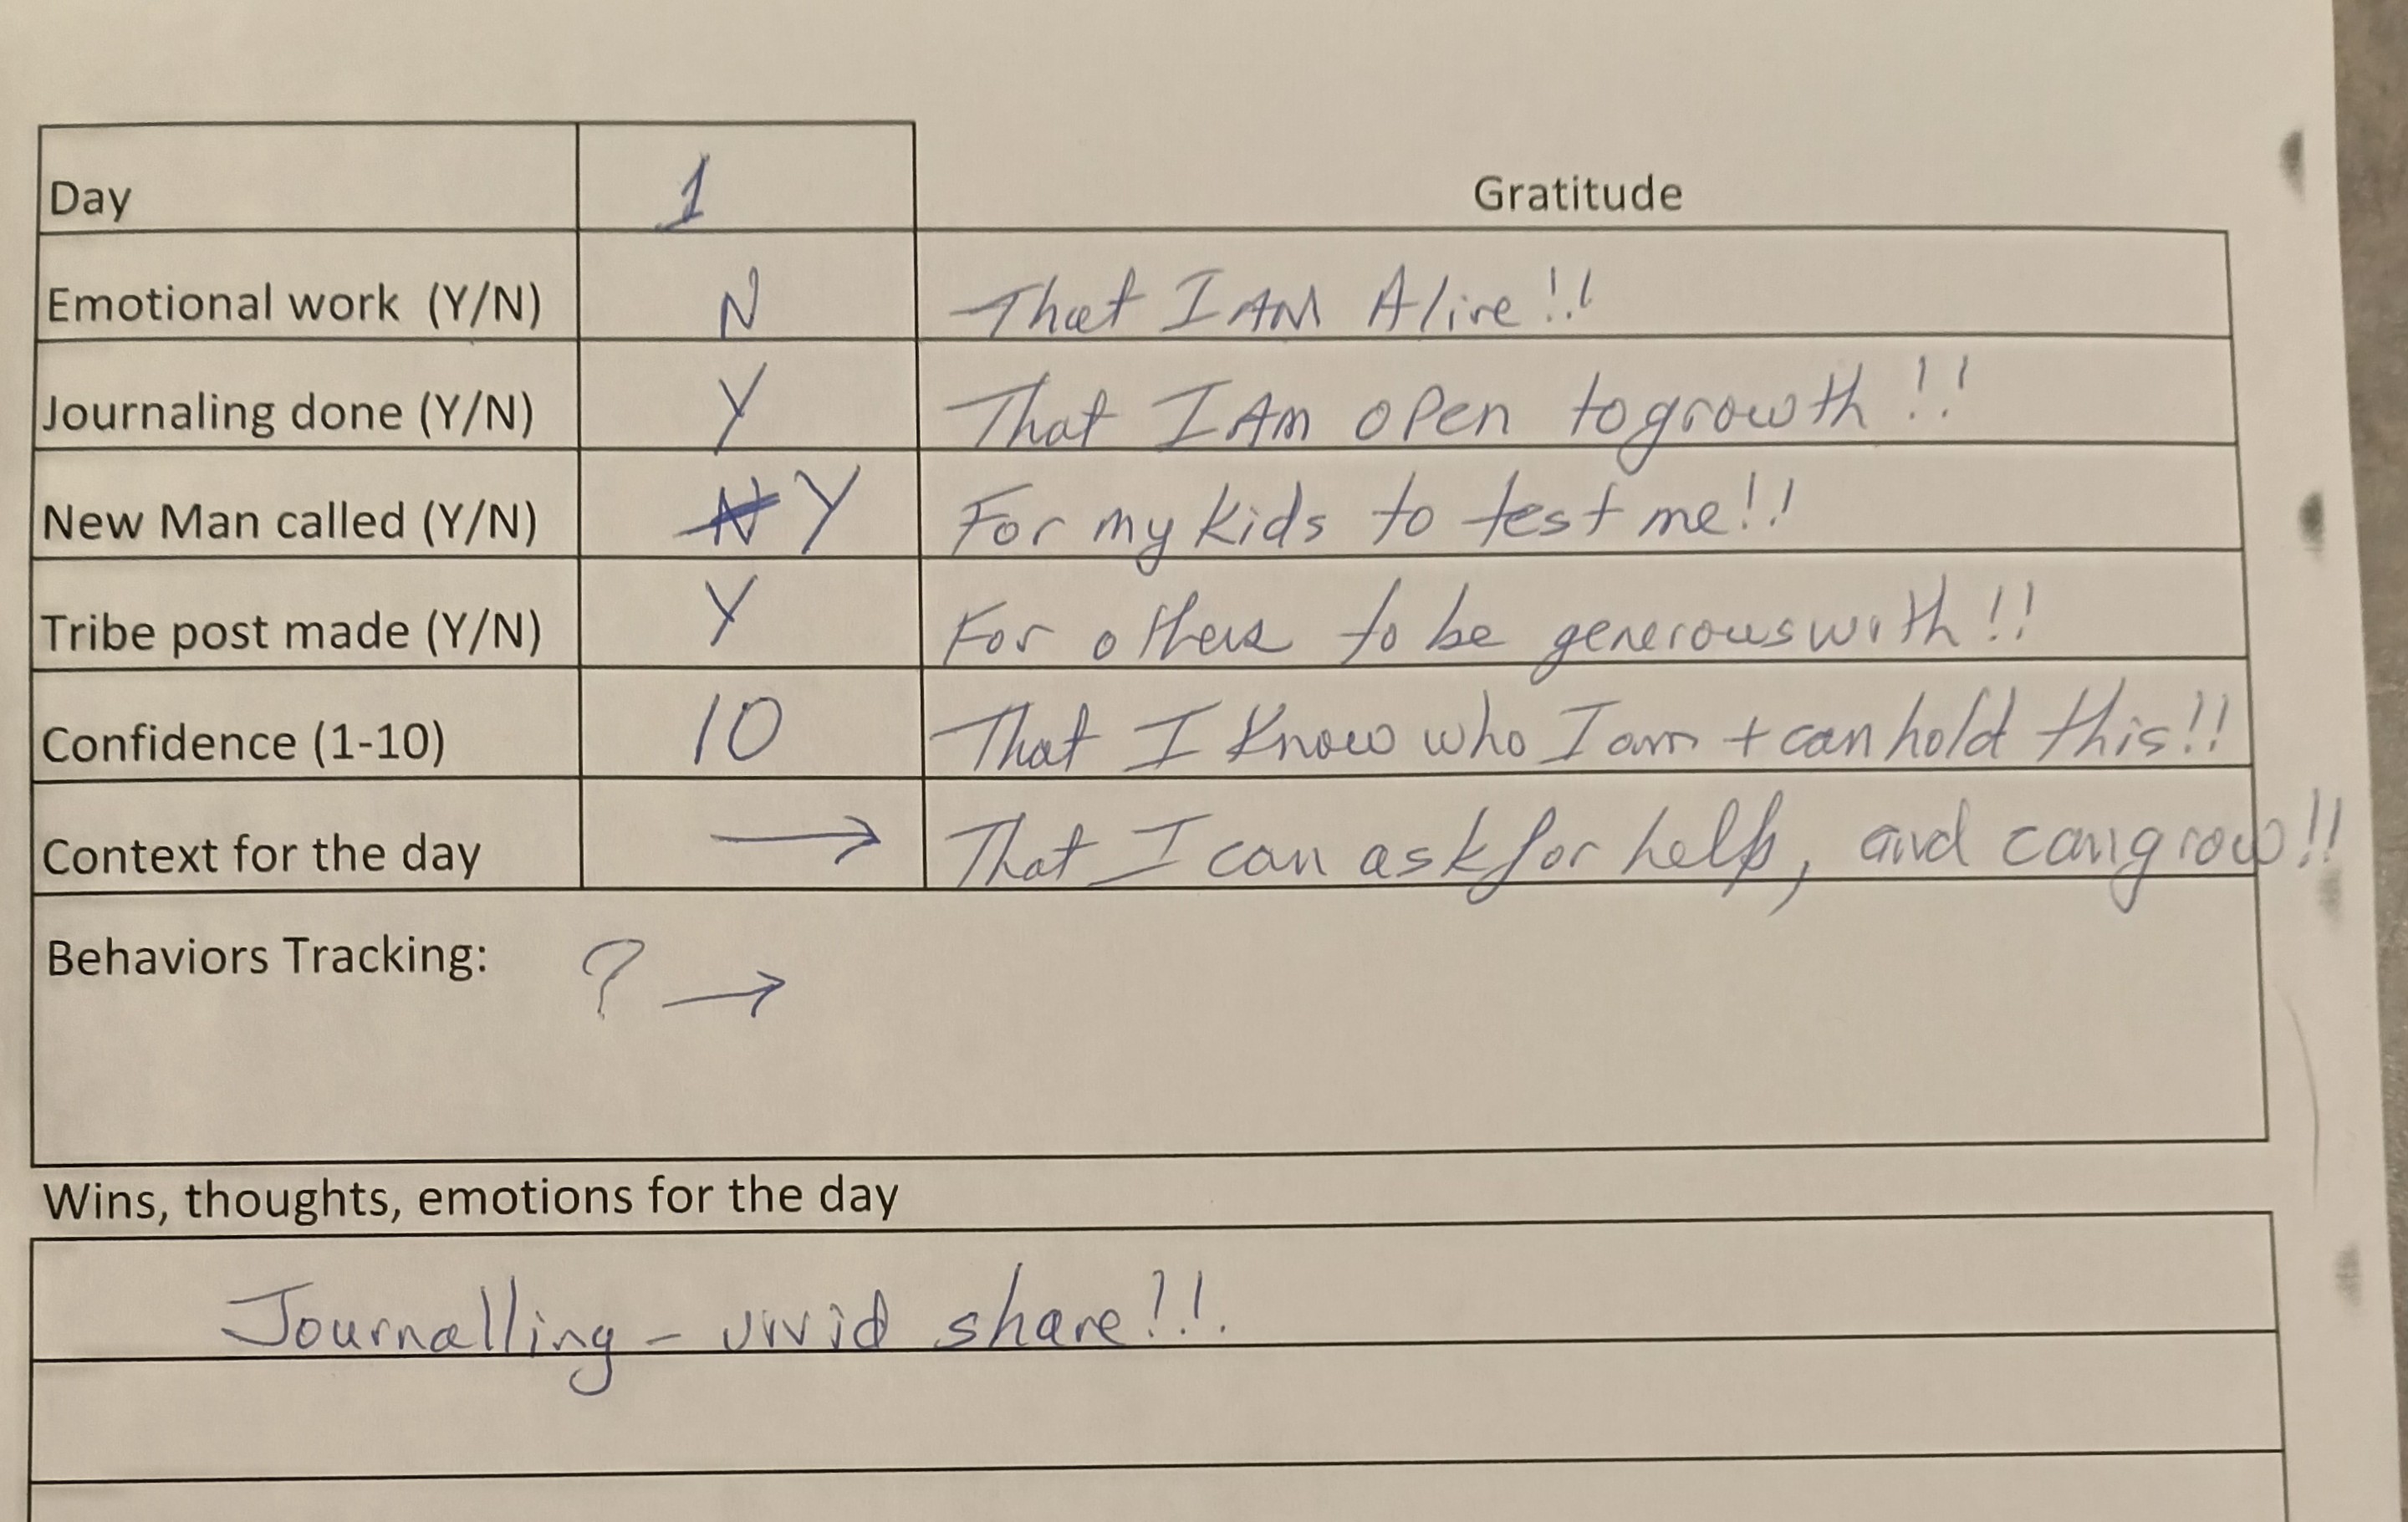 Day 1 Gratitude
Emotional work (Y/N) N That I AM Alive!!
Journaling done (Y/N) Y That I AM open to growth!!
New Man called (Y/N) N Y For my kids to test me!!
Tribe post made (Y/N) Y For others to be generous with!!
Confidence (1-10) 10 That I know who I am + can hold this!!
Context for the day → That I can ask for help, and can grow!!
Behaviors Tracking: ? →
Wins, thoughts, emotions for the day
Journalling - vivid share!!.